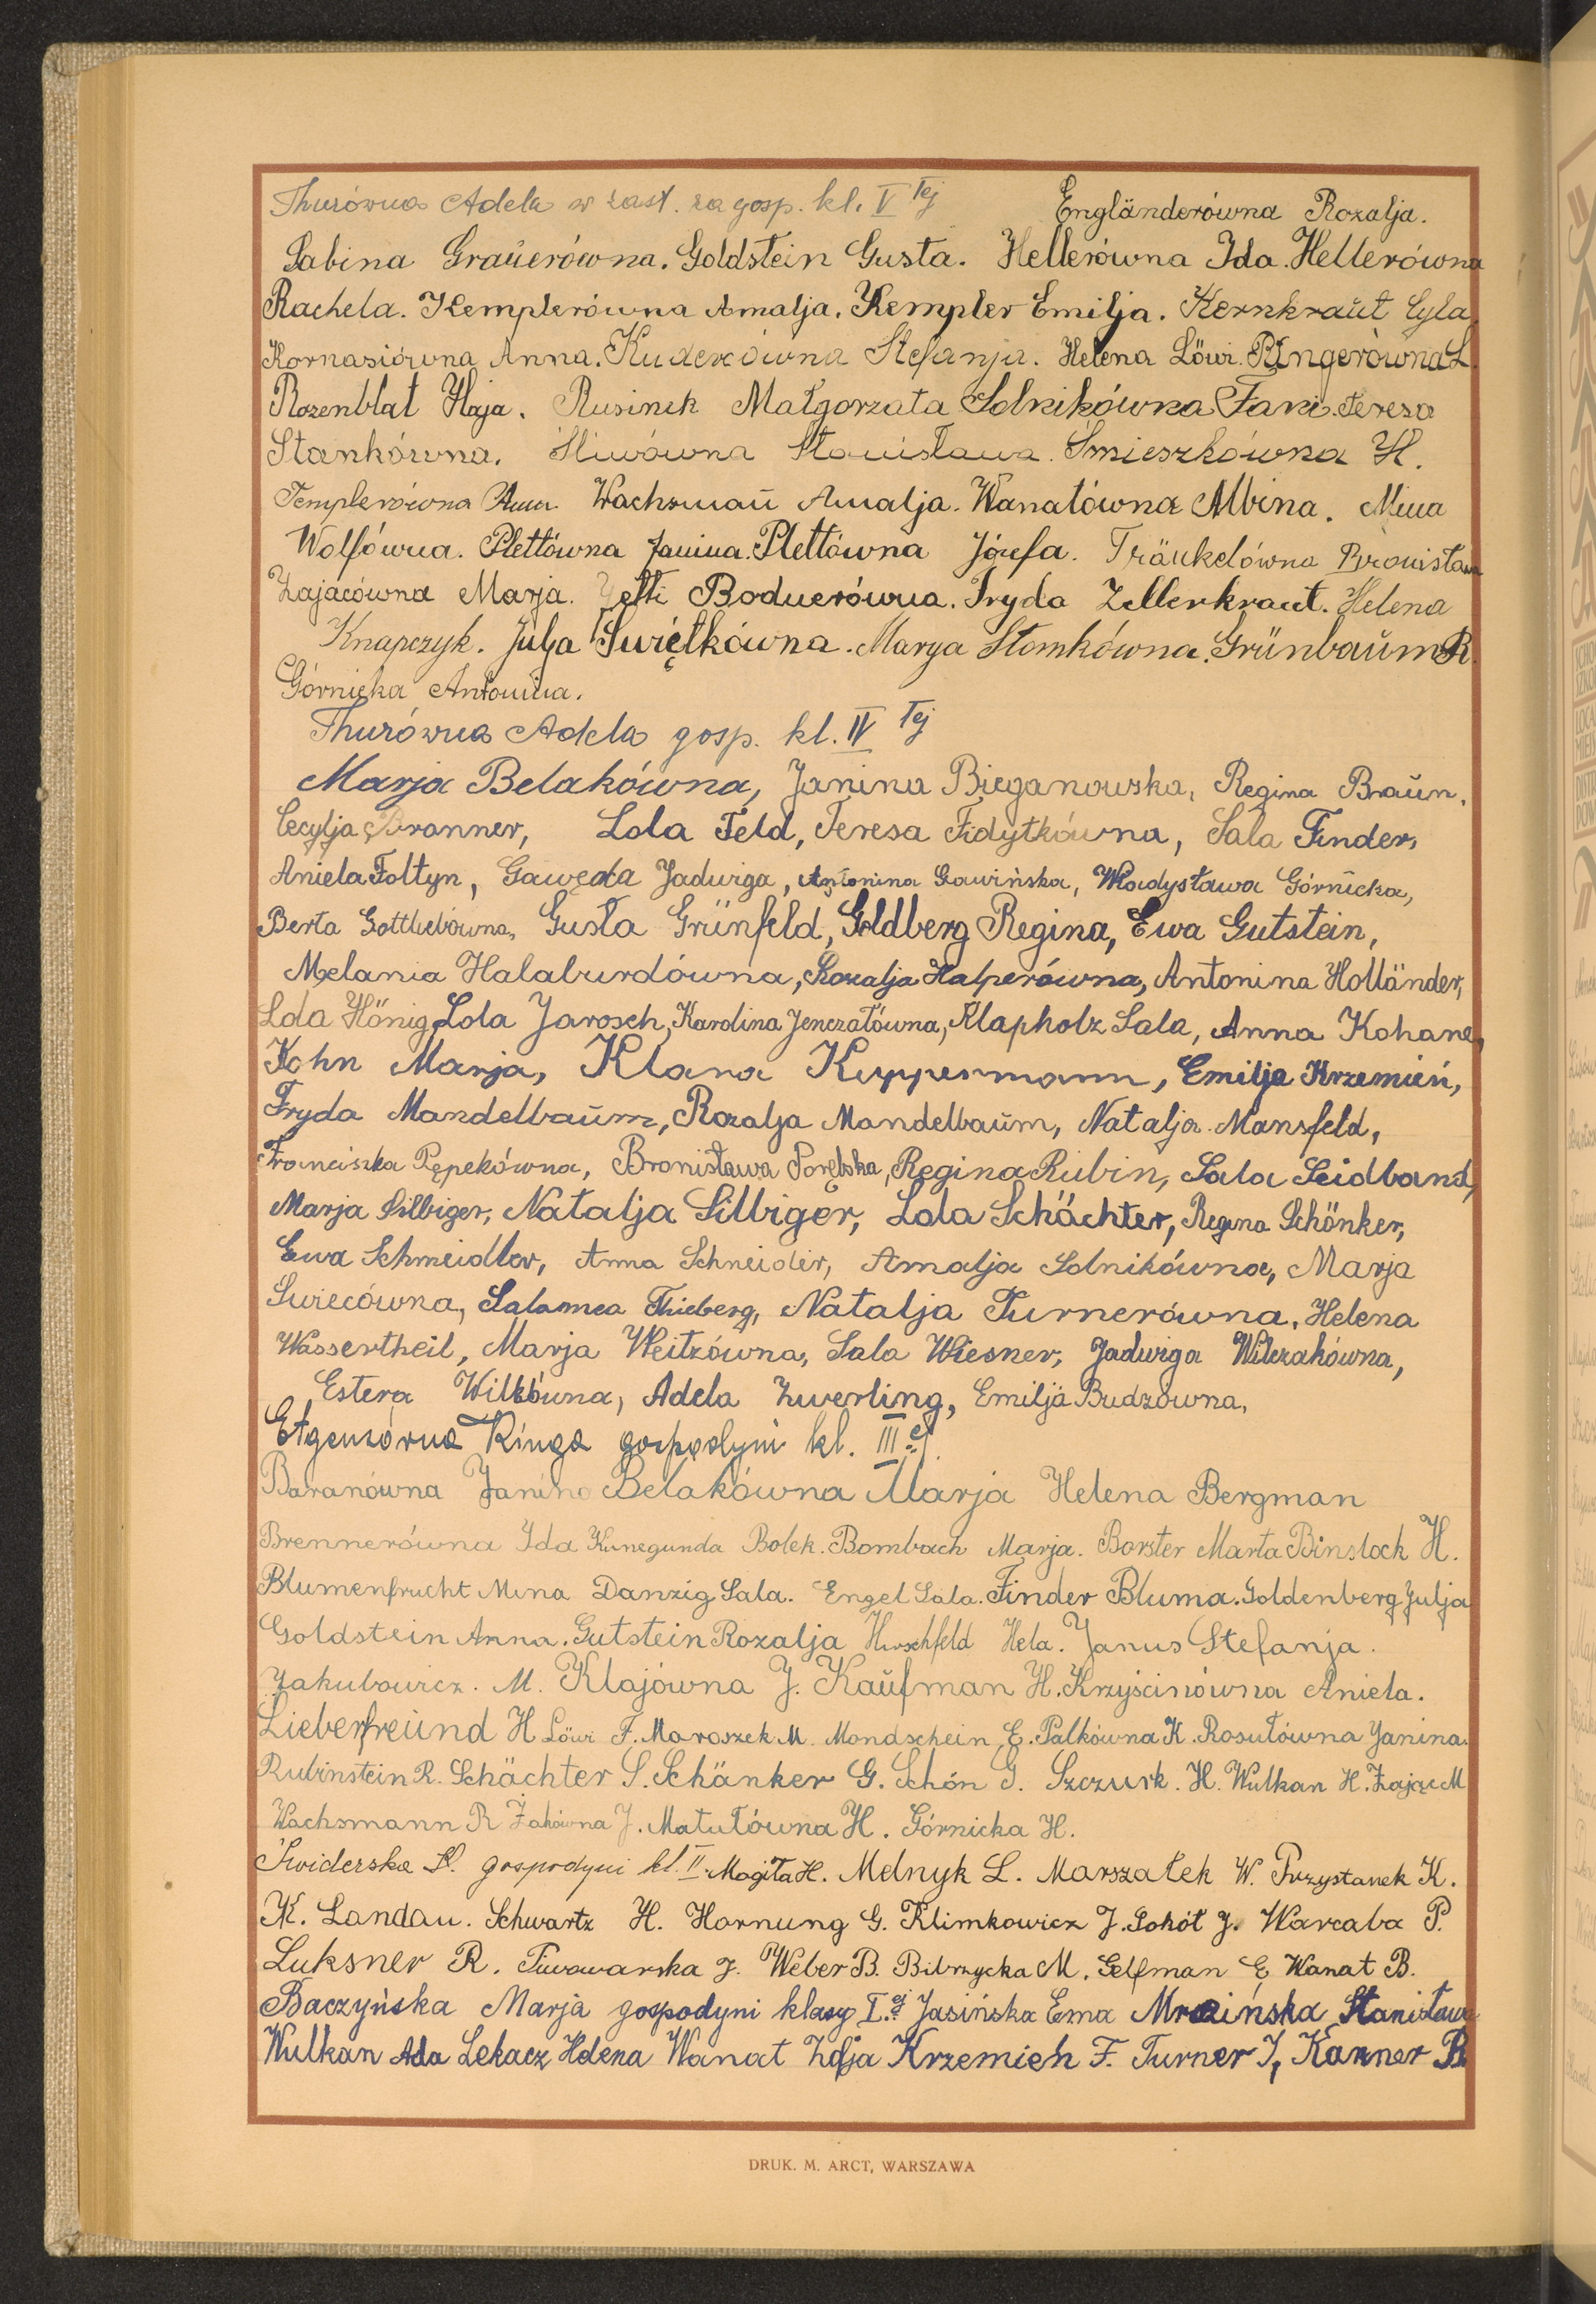 Thurówna Adela w zast. za gosp. kl. V tej Engländerówna Rozalja.
Sabina Graüerówna. Goldstein Gusta. Hellerówna Ida. Hellerówna
Rachela. Kemplerówna Amalja. Kempler Emilja. Kernkraüt Cyla
Kornasiówna Anna. Stefanja. Helena Löwi. Ringerówna L.
Rozenblat Haja. Rusinek Małgorzata Solnikówna Fani. Teresa
Stankówna. Śliwówna Stanisława. Śmieszkówna H.
Templerówna Wachsmaň Amalja. Wanatówna Albina. Mina
Wolfówna. Plettówna Janina. Plettówna Józefa. Fränkelówna Bronisława
Zającówna Marja. Yetti Bodnerówna. Fryda Zellerkraut. Helena
Knapczyk. Julja Świętkówna. Marya Słomkówna. Grünbaüm R.
Górnicka Antonina.
Thurówna Adela gosp. kl. IV tej
Marja Belakówna, Janina Bieganowska, Regina Braün,
Cecylja Bronner, Lola Feld, Teresa Fidytkówna, Sala Finder,
Aniela Foltyn, Gawęda Jadwiga, Antonina Gawińska, Władysława Górnicka,
Berta Gottliebówna, Gusta Grünfeld, Goldberg Regina, Ewa Gutstein,
Melania Halaburdówna, Rozalja Halperówna, Antonina Holländer,
Lola Hönig, Lola Jarosch, Karolina Jenczałówna, Klapholz Sala, Anna Kohane,
Kohn Marja, Klara Kuppermann, Emilja Krzemień,
Fryda Mandelbaüm, Rozalja Mandelbaüm, Natalja Mansfeld,
Franciszka Pępekówna, Bronisława Porębska, Regina Rubin, Sala Seidband,
Marja Silbiger, Natalja Silbiger, Lola Schächter, Regina Schönker,
Ewa Schmeidler, Anna Schneider, Amalja Solnikówna, Marja
Świecówna, Salomea Thieberg, Natalja Turnerówna, Helena
Wassertheil, Marja Weitzówna, Sala Wiesner, Jadwiga Wilczakówna,
Estera Wilkówna, Adela Zwerling, Emilja Budzówna,
Etgensówna Kinga gospodyni kl. III ej.
Baranówna Janina Belakówna Marja Helena Bergman
Brennerówna Ida Kunegunda Bolek. Bombach Marja. Borster Marta Binstock H.
Blumenfrucht Mina Danzig Sala. Engel Sala. Finder Bluma. Goldenberg Julja
Goldstein Anna. Gutstein Rozalja Hirschfeld Hela. Janus Stefanja.
Jakubowicz. M. Klajówna J. Kaüfman H. Krzyścinówna Aniela.
Lieberfreünd H Löwi F. Maroszek M. Mondschein E. Palkówna K. Rosułówna Janina.
Rubinstein R. Schächter S. Schänker G. Schön G. Szczurk. H. Wulkan H. Zając M
Wachsmann R Żakówna J. Matułówna H. Górnicka H.
Świderska H. gospodyni kl. II. Magita H. Melnyk L. Marszałek W. Przystanek K.
K. Landau. Schwartz H. Hornung G. Klimkowicz J. Sokół J. Warcaba P.
Luksner R. Piwowarska J. Weber B. Bibrzycka M. Gelfman E Wanat B.
Baczyńska Marja gospodyni klasy I. ej Jasińska Ema Mrozińska Stanisława
Wulkan Ada Lekacz Helena Wanat Zofja Krzemień F. Turner J, Kanner B
DRUK. M. ARCT, WARSZAWA